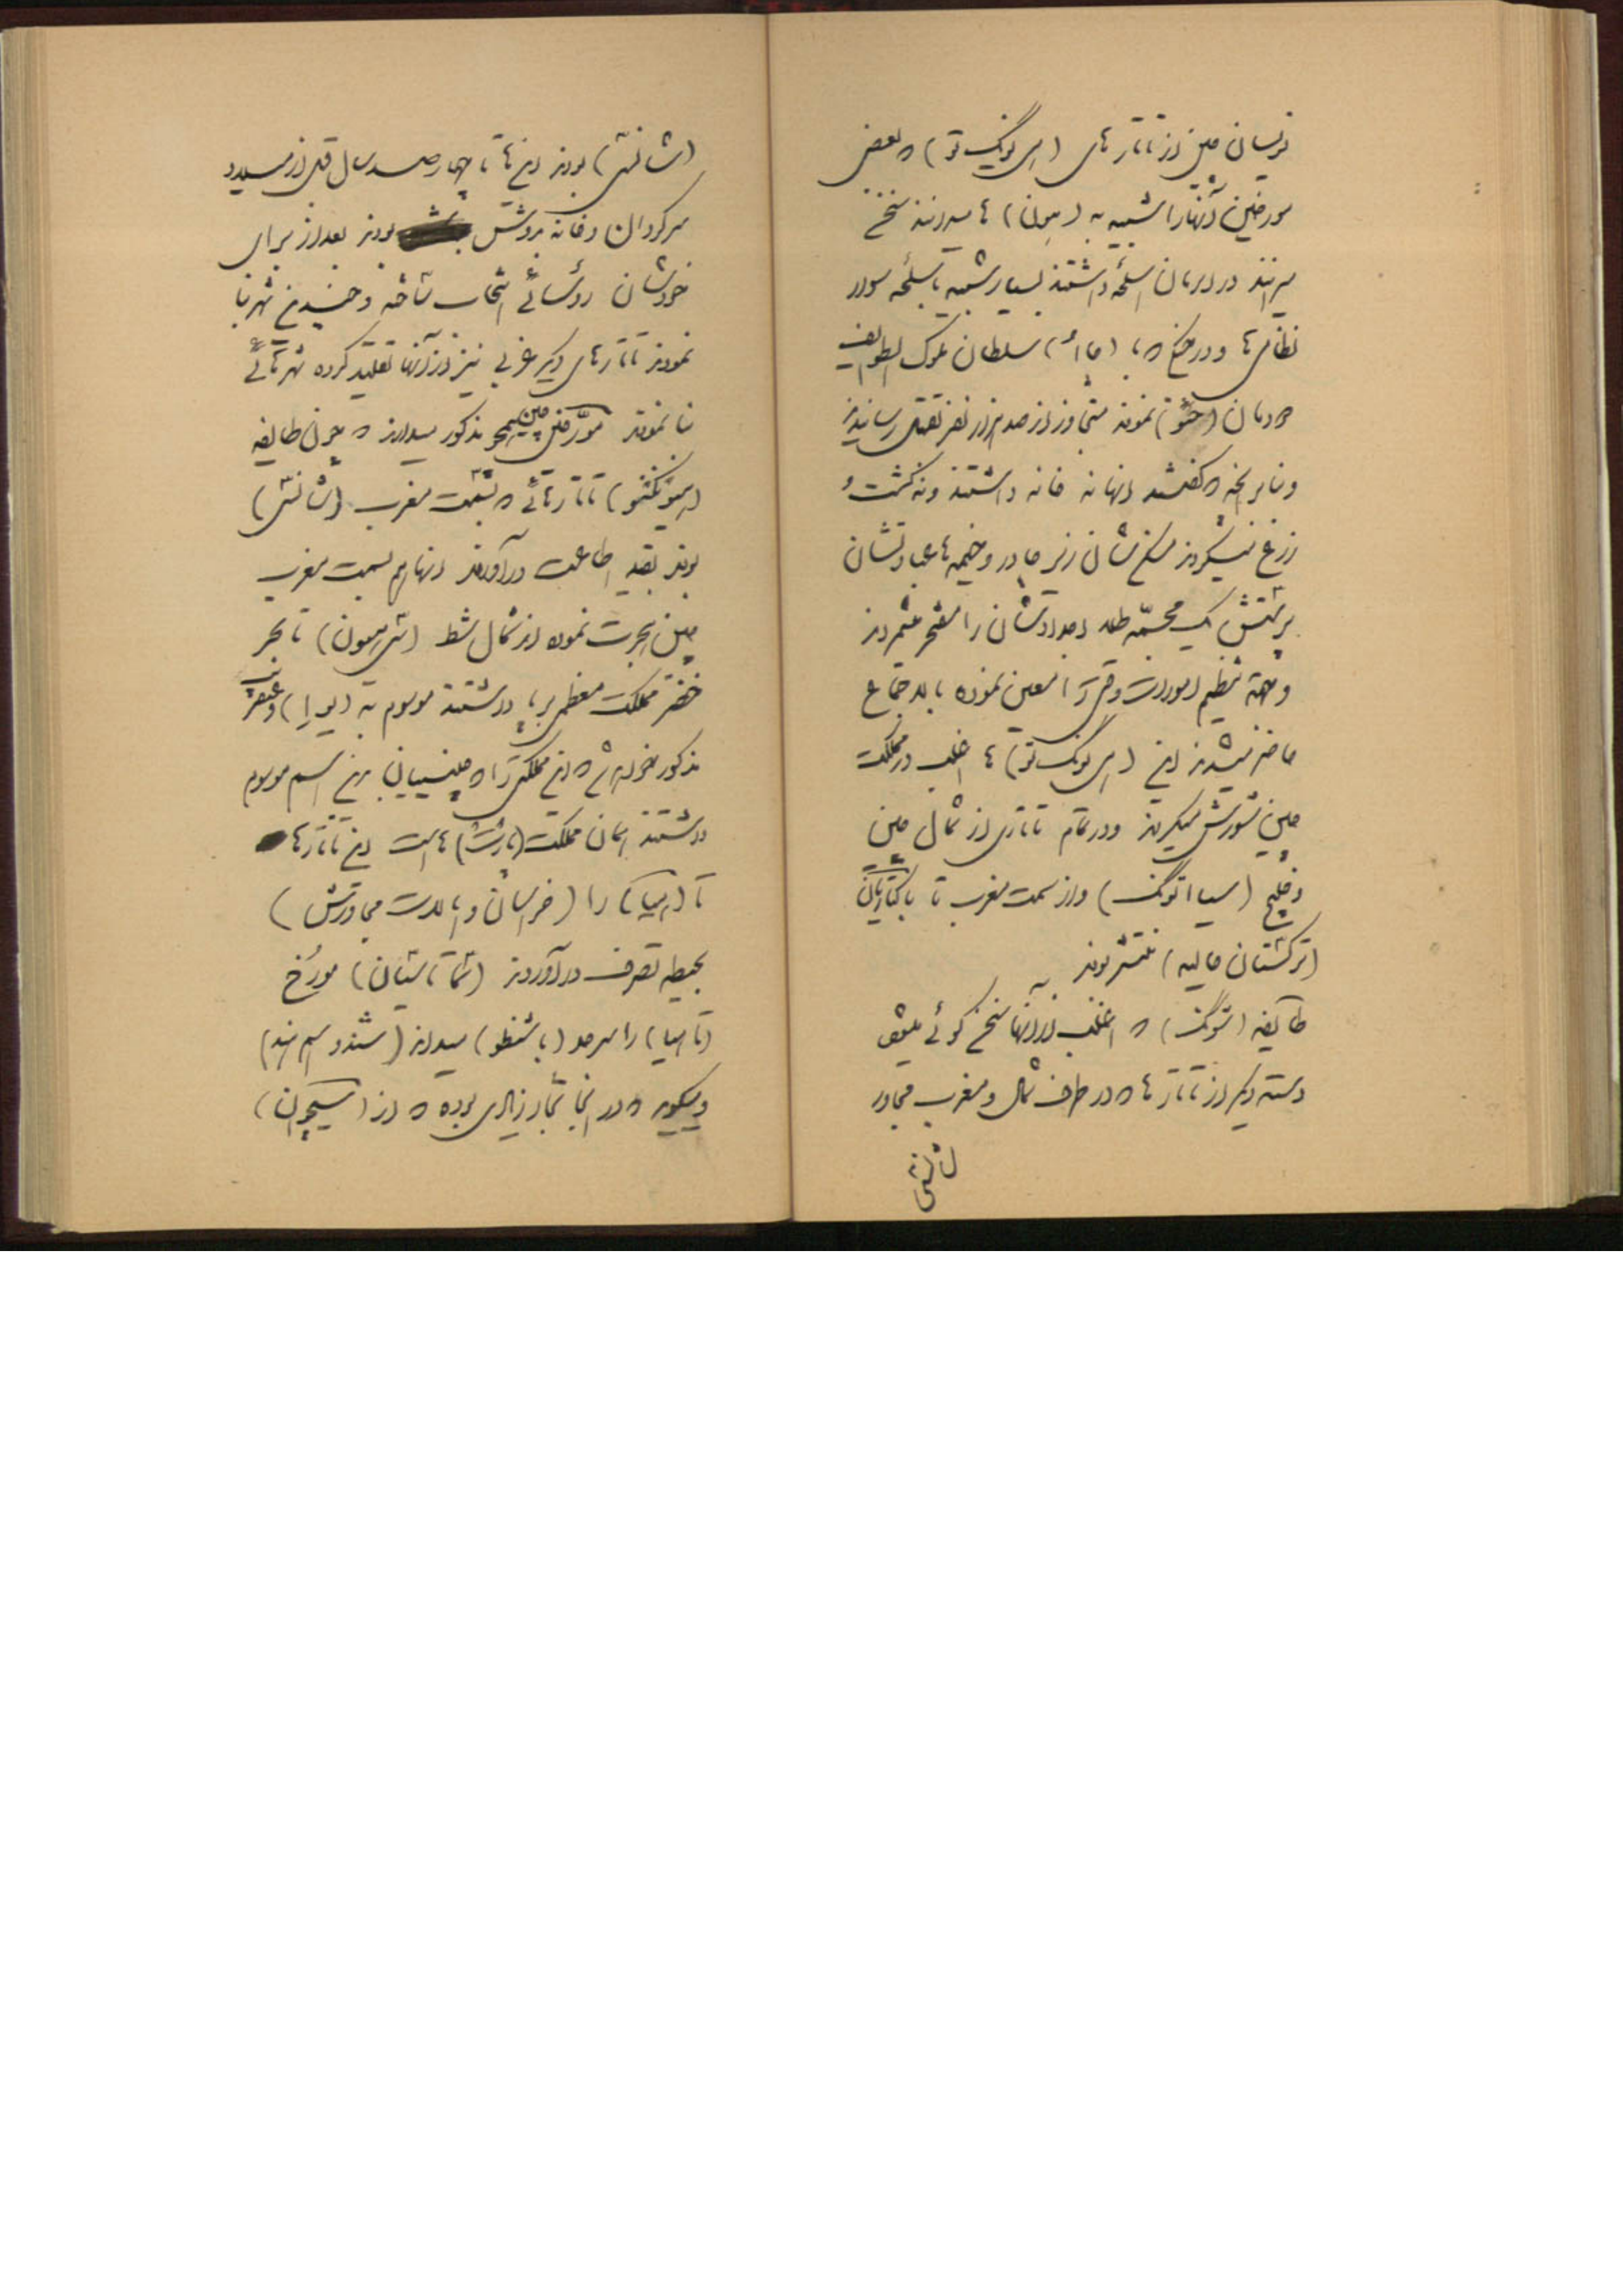 نویسان چین از تاتارهای (هی یونگ نو) که بعضی
مورخین آنها را شبیه به (هون) ها میدانند سخن
میرانند در آن زمان اسلحه داشتند بسیار شبیه باسلحه سوار
نظامی ها و در جنگ که با سلطان ملوک الطوایف
نمودند متجاوز از صد هزار نفر بقتل رسانیدند
و بنا بر آنچه که گفتند اینها نه خانه داشتند و نه کشت و
زرع نمیکردند مسکن شان زیر چادر و خیمه ها عبادتشان
پرستش یک مجسمه طلا اجدادشان را مفتخر میشمردند
و جهة تنظیم امورات وقتی را معین نموده بالاجتماع
حاضر میشدند این (هی یونگ نو) ها اغلب در مملکت
چین شورش میکردند و در تمام تاتاری از شمال چین
و خلیج (سیا اتونگ) و از سمت مغرب تا باکتریان
(ترکستان حالیه) منتشر بودند
طایفه (تونگ) که اغلب از آنها سخن گوئی میشود
دسته دیگر از تاتارها که در طرف شمال و مغرب مجاور
شانسی
(شانسی) بودند این ها تا چهار صد سال قبل از میلاد
سرگردان و خانه بدوش بودند بعد از برای
خودشان رؤسائی انتخاب ساخته و چندین شهر بنا
نمودند تاتارهای دیگر غربی نیز از آنها تقلید کرده شهرهائی
بنا نمودند مورخین چین مذکور میدارند که چون طایفه
تاتارهائی که بسمت مغرب (شانسی)
بودند بقید اطاعت درآوردند اینها هم بسمت مغرب
چین هجرت نموده از شمال شط (سیحون) تا بحر
خضر مملکت معظمی برپا داشتند موسوم به و عنقریب
مذکور خواهد شد که این مملکتی را که چینییان باین اسم موسوم
داشتند همان مملکت (پارت) هاست این تاتارها
تا (هیا) را (خراسان و ایالات مجاورش)
بحیطه تصرف درآوردند مورخ
(تاهیا) را سرحد میداند (سند و اسم هند)
و میگوید که در آنجا تجار زیادی بوده که از